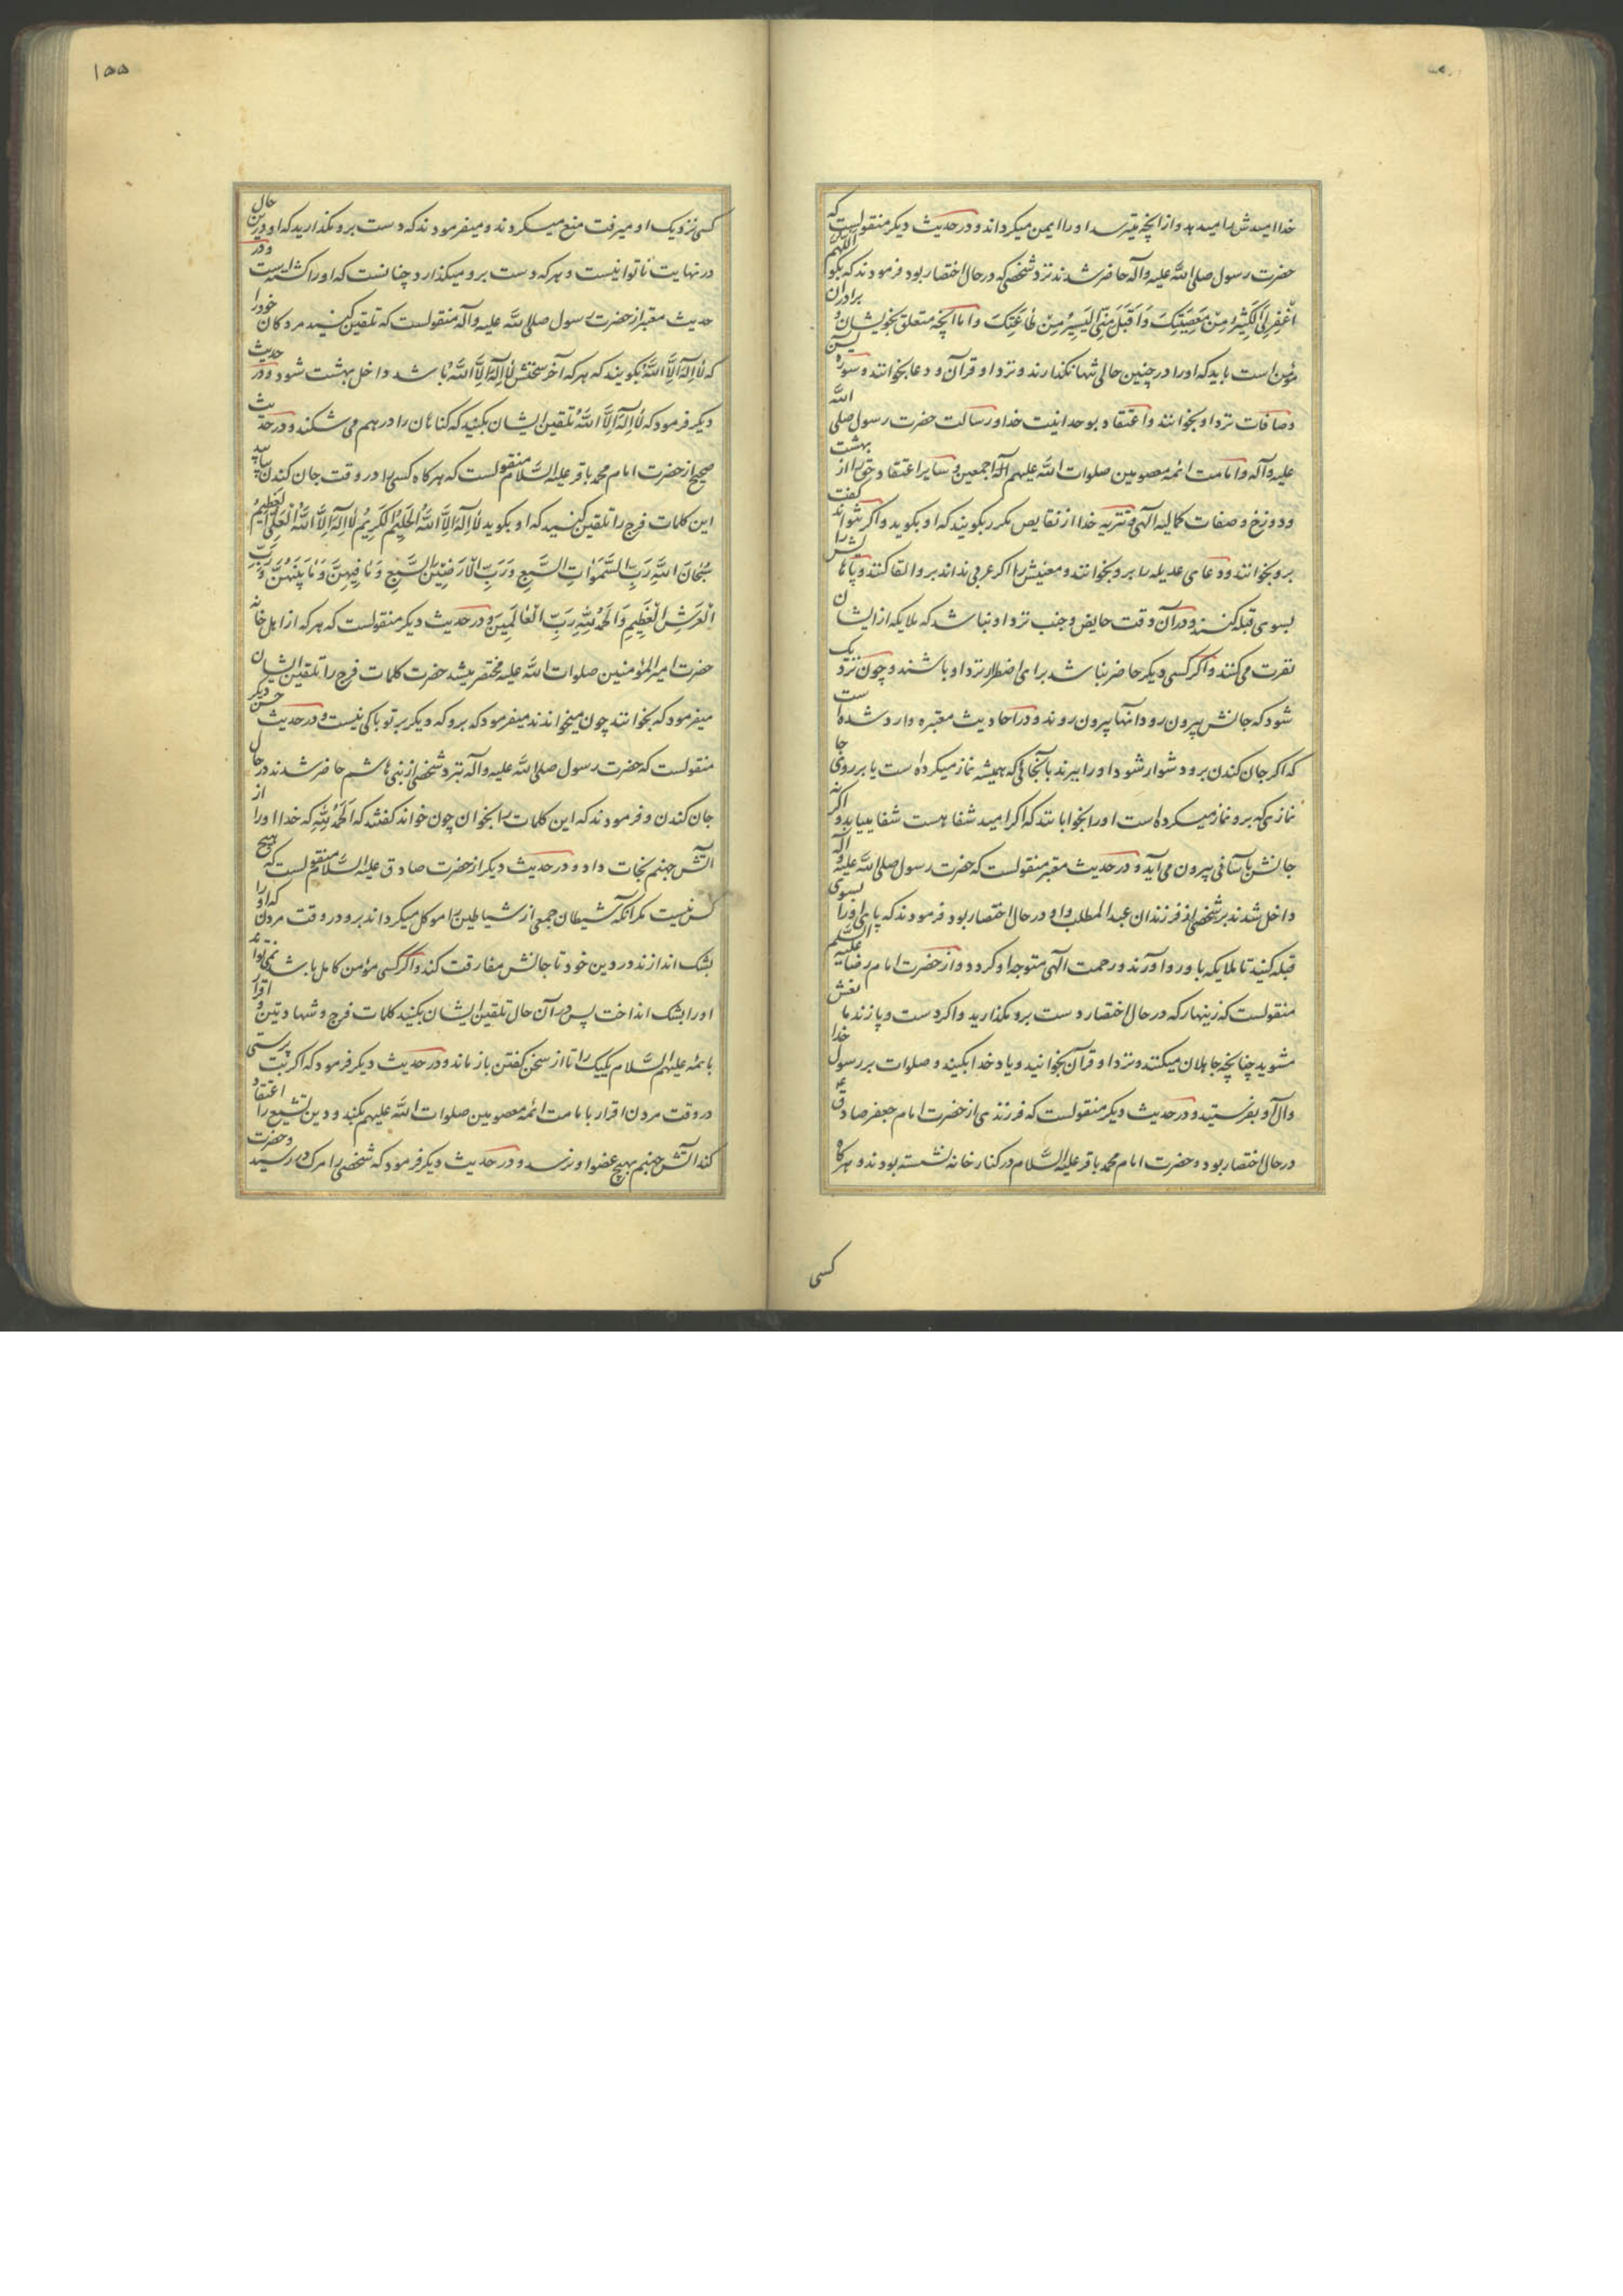 خدا امیدش را میدهد و از آنچه میترسد او را ایمن میکرداند و در حدیث دیکر منقولست که
حضرت رسول صلی الله علیه وآله حاضر شدند نزد شخصی که در حال احتضار بود فرمودند که بکو اللهم
اغْفِرْ لِیَ الْکَثِیرَ مِنْ مَعْصِیَتِکَ وَاقْبَلْ مِنِّی الْیَسِیرَ مِنْ طَاعَتِکَ و اما آنچه متعلق بخویشان و برادران
مؤمن است باید که او را در چنین حالی تنها نکذارند و نزد او قرآن و دعا بخوانند و سوره یس
و صافات نزد او بخوانند و اعتقاد بوحدانیت خدا و رسالت حضرت رسول صلی الله
علیه وآله و امامت ائمه معصومین صلوات الله علیهم اجمعین و سایر اعتقادات حق را از بهشت
و دوزخ و صفات کمالیه الهی و تنزیه خدا از نقایص مکرر بکویند که او بکوید و اکر نتواند کفت
برو بخوانند و دعای عدیله را برو بخوانند و معنیش را اکر عربی نداند برو القا کنند و پاهایش را
بسوی قبله کنند و در آن وقت حایض و جنب نزد او نباشد که ملایکه از ایشان
نفرت می کنند و اکر کسی دیکر حاضر نباشد برای اضطرار نزد او باشند و چون نزدیک
شود که جانش بیرون رود آنها بیرون روند و در احادیث معتبره وارد شده است
که اکر جان کندن برو دشوار شود او را ببرند بآنجائی که همیشه نماز میکرده است یا بر روی جا
نمازی که برو نماز میکرده است او را بخوابانند که اکر امید شفا هست شفا مییابد و اکرنه
جانش بآسانی بیرون می آید و در حدیث معتبر منقولست که حضرت رسول صلی الله علیه وآله
داخل شدند بر شخصی از فرزندان عبد المطلب و او در حال احتضار بود فرمودند که پای او را بسوی
قبله کنید تا ملایکه باو رو آورند و رحمت الهی متوجه او کردد و از حضرت امام رضا علیه السلم
منقولست که زینهار که در حال احتضار دست برو مکذارید و اکر دست و پا زند مانعش
مشوید چنانچه جاهلان میکنند و نزد او قرآن بخوانید و یاد خدا بکنید و صلوات بر رسول خدا
وآل او بفرستید و در حدیث دیکر منقولست که فرزندی از حضرت امام جعفر صادق ع
در حال احتضار بود و حضرت امام محمد باقر علیه السلام در کنار خانه نشسته بودند و هرکاه
کسی
۱۵۵
کسی نزدیک او میرفت منع میکردند و میفرمودند که دست برو مکذارید که او درین حال
در نهایت ناتوانیست و هر که دست برو میکذارد چنانست که او را کشته است و در
حدیث معتبر از حضرت رسول صلی الله علیه وآله منقولست که تلقین کنید مردکان خود را
که لا اِلهَ اِلَّا اللهُ بکویند که هر که آخر سخنش لا اِلهَ اِلَّا اللهُ باشد داخل بهشت شود و در حدیث
دیکر فرمود که لا اِلهَ اِلَّا اللهُ تلقین ایشان بکنید که کناهان را در هم می شکند و در حدیث
صحیح از حضرت امام محمد باقر علیه السلام منقولست که هرکاه کسی را در وقت جان کندن بیابید
این کلمات فرج را تلقین کنید که او بکوید لا اِلهَ اِلَّا اللهُ الْحَلِیمُ الْکَرِیمُ لا اِلهَ اِلَّا اللهُ الْعَلِیُّ الْعَظِیمُ
سُبْحَانَ اللهِ رَبِّ السَّمَوَاتِ السَّبْعِ وَرَبِّ الْاَرَضِینَ السَّبْعِ وَمَا فِیهِنَّ وَمَا بَیْنَهُنَّ وَرَبِّ
الْعَرْشِ الْعَظِیمِ وَالْحَمْدُ لِلّهِ رَبِّ الْعَالَمِینَ و در حدیث دیکر منقولست که هر که از اهل خانه
حضرت امیر المؤمنین صلوات الله علیه محتضر میشد حضرت کلمات فرج را تلقین ایشان
میفرمود که بخوانند چون میخواندند میفرمود که برو که دیکر بر تو باکی نیست و در حدیث حسن دیکر
منقولست که حضرت رسول صلی الله علیه وآله بنزد شخصی از بنی هاشم حاضر شدند در حال
جان کندن و فرمودند که این کلمات را بخوان چون خواند کفتند که الحمد لله که خدا او را از
آتش جهنم نجات داد و در حدیث دیکر از حضرت صادق علیه السلام منقولست که هیچ
کس نیست مکر آنکه شیطان جمعی از شیاطین را موکل میکرداند برو در وقت مردن که او را
بشک اندازند در دین خود تا جانش مفارقت کند و اکر کسی مؤمن کامل باشد نمی تواند
او را بشک انداخت پس در آن حال تلقین ایشان بکنید کلمات فرج و شهادتین و اقرار
بائمه علیهم السلام یکیک را تا از سخن کفتن باز ماند و در حدیث دیکر فرمود که اکر بت پرستی
در وقت مردن اقرار بامامت ائمه معصومین صلوات الله علیهم بکند و دین تشیع را اعتقاد
کند آتش جهنم بهیچ عضو او نرسد و در حدیث دیکر فرمود که شخصی را مرک در رسید و حضرت